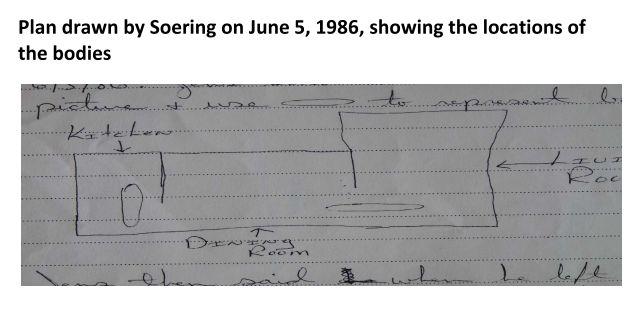 Plan drawn by Soering on June 5, 1986, showing the locations of
the bodies
picture & use to represent
Kitchen
Dining
Room
Jens then said when he left